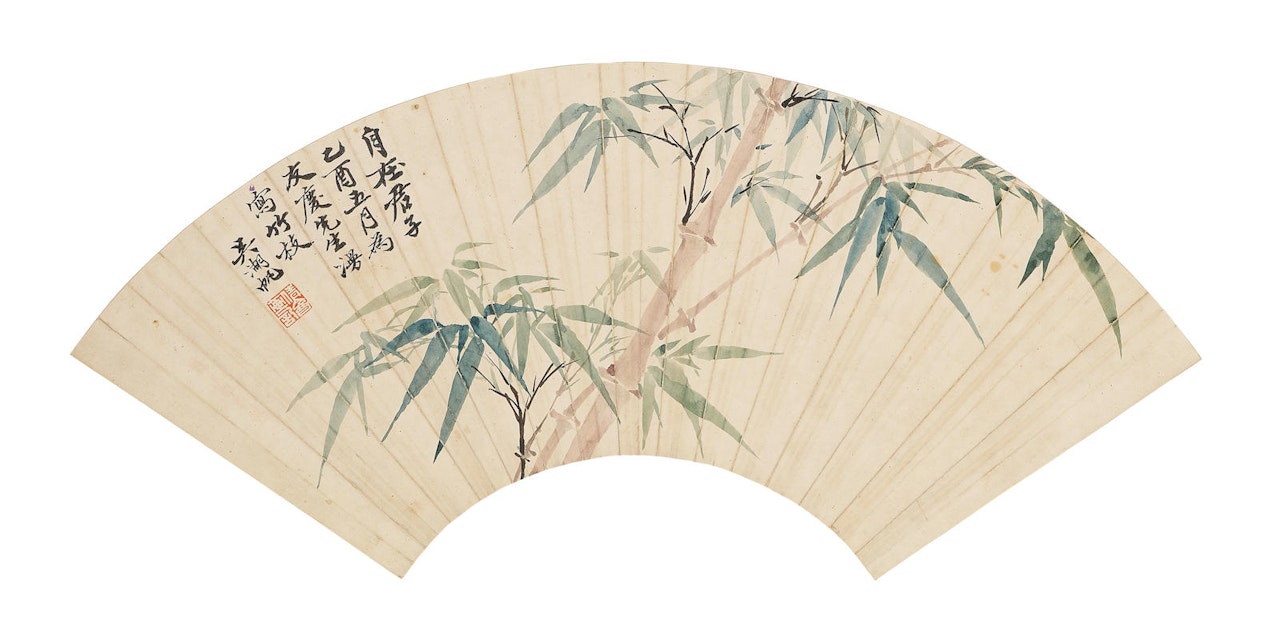 自在君子
乙酉五月為
友慶先生漫
寫竹枝
吳湖帆